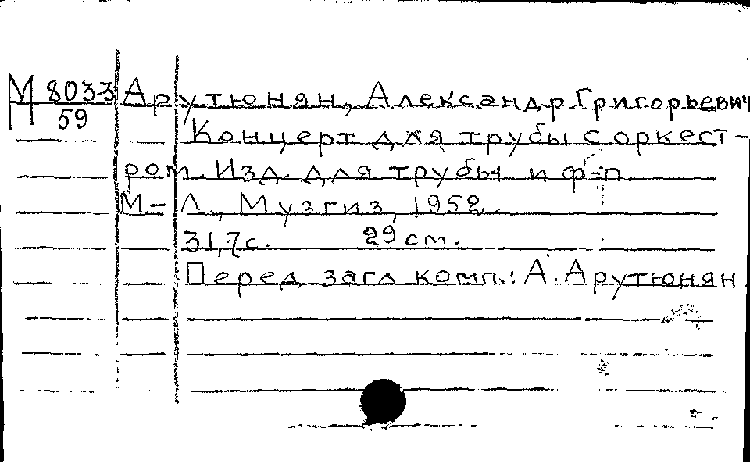 М 8033 Арутюнян, Александр Григорьевич
59
Концерт для трубы с оркест-
ром. Изд. для трубы и ф-п.
М-Л, Музгиз, 1952.
31,7с. 29 cm.
Перед загл комп.: А. Арутюнян